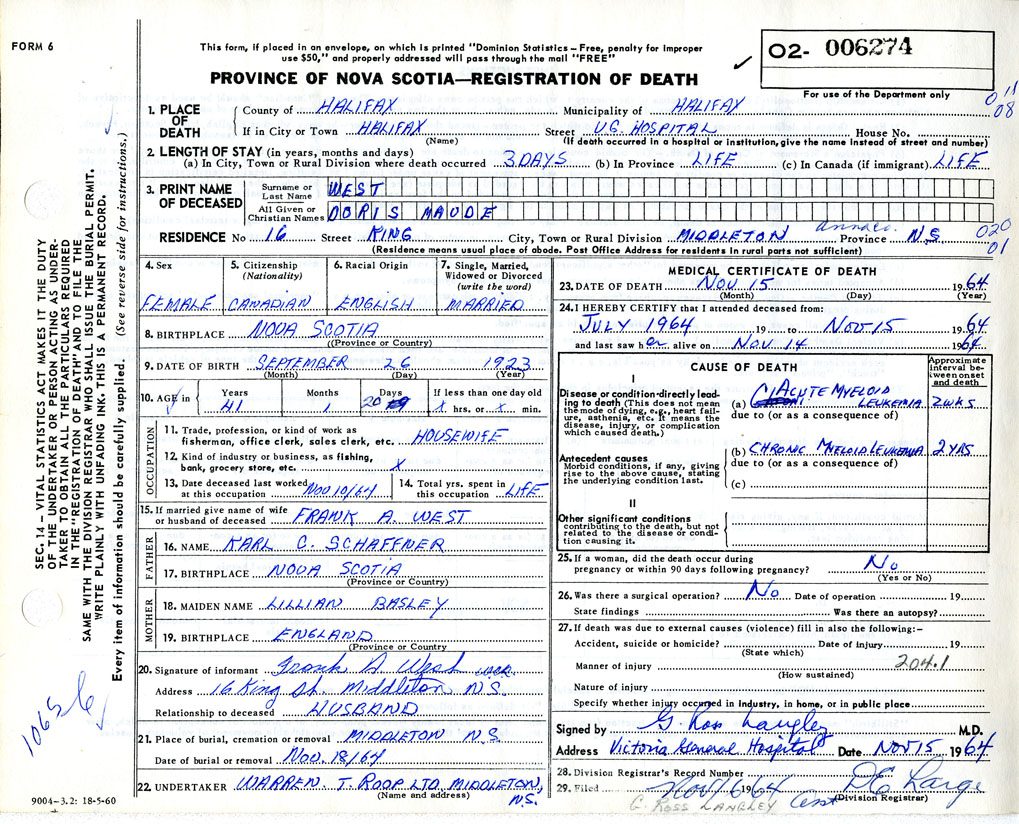 FORM 6
This form, if placed in an envelope, on which is printed "Dominion Statistics – Free, penalty for improper
use $50," and properly addressed will pass through the mail "FREE"
PROVINCE OF NOVA SCOTIA—REGISTRATION OF DEATH
✓
02- 006274
For use of the Department only
011
08
SEC. 14 – VITAL STATISTICS ACT MAKES IT THE DUTY
OF THE UNDERTAKER OR PERSON ACTING AS UNDER-
TAKER TO OBTAIN ALL THE PARTICULARS REQUIRED
IN THE "REGISTRATION OF DEATH" AND TO FILE THE
SAME WITH THE DIVISION REGISTRAR WHO SHALL ISSUE THE BURIAL PERMIT.
WRITE PLAINLY WITH UNFADING INK. THIS IS A PERMANENT RECORD.
Every item of information should be carefully supplied. (See reverse side for instructions.)
1. PLACE OF DEATH
County of HALIFAX Municipality of HALIFAX
If in City or Town HALIFAX Street V.G. HOSPITAL House No.
(Name) (If death occurred in a hospital or institution, give the name instead of street and number)
2. LENGTH OF STAY (in years, months and days)
(a) In City, Town or Rural Division where death occurred 3 DAYS (b) In Province LIFE (c) In Canada (if immigrant) LIFE
3. PRINT NAME OF DECEASED
Surname or Last Name WEST
All Given or Christian Names DORIS MAUDE
RESIDENCE No 16 Street KING City, Town or Rural Division MIDDLETON Province N.S.
020
01
(Residence means usual place of abode. Post Office Address for residents in rural parts not sufficient)
4. Sex
FEMALE
5. Citizenship (Nationality)
CANADIAN
6. Racial Origin
ENGLISH
7. Single, Married, Widowed or Divorced (write the word)
MARRIED
8. BIRTHPLACE NOVA SCOTIA
(Province or Country)
9. DATE OF BIRTH SEPTEMBER 26 1923
(Month) (Day) (Year)
10. AGE in Years Months Days If less than one day old
41 1 20 X hrs. or X min.
OCCUPATION
11. Trade, profession, or kind of work as
fisherman, office clerk, sales clerk, etc. HOUSEWIFE
12. Kind of industry or business, as fishing,
bank, grocery store, etc. X
13. Date deceased last worked at this occupation NOV 10/64
14. Total yrs. spent in this occupation LIFE
15. If married give name of wife
or husband of deceased FRANK A. WEST
FATHER
16. NAME KARL C. SCHAFFNER
17. BIRTHPLACE NOVA SCOTIA
(Province or Country)
MOTHER
18. MAIDEN NAME LILLIAN BASLEY
19. BIRTHPLACE ENGLAND
(Province or Country)
20. Signature of informant Frank A. West
Address 16 King St. Middleton N.S.
Relationship to deceased HUSBAND
21. Place of burial, cremation or removal MIDDLETON N.S.
Date of burial or removal NOV. 18/64
22. UNDERTAKER WARREN T. ROOP LTD, MIDDLETON, N.S.
(Name and address)
MEDICAL CERTIFICATE OF DEATH
23. DATE OF DEATH NOV 15 1964
(Month) (Day) (Year)
24. I HEREBY CERTIFY that I attended deceased from:
JULY 1964 19 to NOV 15 1964
and last saw her alive on NOV 14 1964
CAUSE OF DEATH
Approximate interval between onset and death
I
Disease or condition directly leading to death (This does not mean the mode of dying, e.g., heart failure, asthenia, etc. It means the disease, injury, or complication which caused death.)
(a) ACUTE MYELOID LEUKEMIA 2 WKS
due to (or as a consequence of)
Antecedent causes
Morbid conditions, if any, giving rise to the above cause, stating the underlying condition last.
(b) CHRONIC MYELOID LEUKEMIA 2 YRS
due to (or as a consequence of)
(c)
II
Other significant conditions
contributing to the death, but not related to the disease or condition causing it.
25. If a woman, did the death occur during
pregnancy or within 90 days following pregnancy? No
(Yes or No)
26. Was there a surgical operation? No Date of operation 19
State findings Was there an autopsy?
27. If death was due to external causes (violence) fill in also the following:–
Accident, suicide or homicide? Date of injury 19
(State which)
Manner of injury 204.1
(How sustained)
Nature of injury
Specify whether injury occurred in Industry, in home, or in public place
Signed by G. Ross Langley M.D.
Address Victoria General Hospital Date NOV 15 1964
28. Division Registrar's Record Number
29. Filed Nov 16 1964
(Division Registrar)
G. ROSS LANGLEY
9004-3.2: 18-5-60